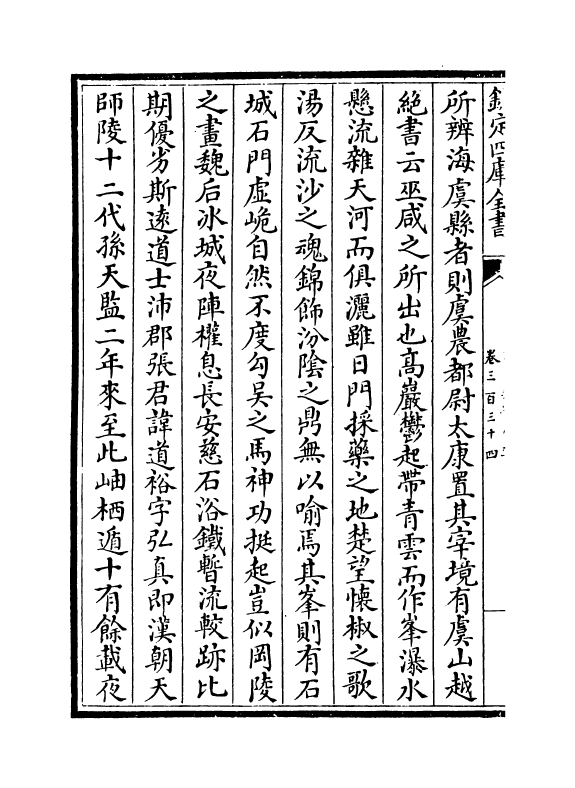 欽定四庫全書
卷三百三十四
所辨海虞縣者則虞農都尉太康置其宰境有虞山越
絕書云巫咸之所出也高巖鬱起帶青雲而作峯瀑水
懸流雜天河而俱灑雖日門採藥之地楚望懐椒之歌
湯反流沙之魂錦飾汾陰之鼎無以喻焉其峯則有石
城石門虛峗自然不度勾吴之馬神功挺起豈似岡陵
之畫魏后冰城夜陣權息長安慈石浴鐵暫流較跡比
期優劣斯逺道士沛郡張君諱道裕字弘真即漢朝天
師陵十二代孫天監二年來至此岫栖遁十有餘載夜